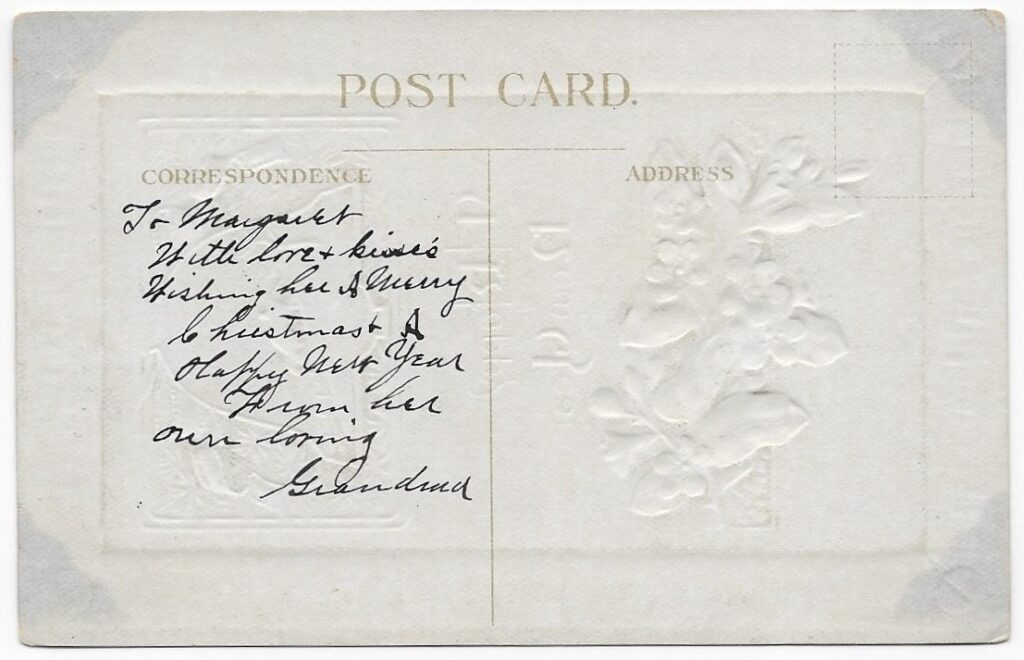 POST CARD.
CORRESPONDENCE
ADDRESS
To Margaret
With love & kisses
Wishing her A Merry
Christmas & A
Happy New Year
From her
own loving
Grandad